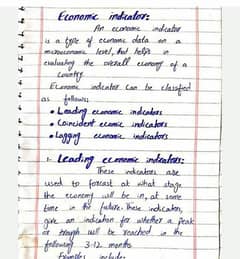 Economic indicator:
An economic indicator
is a type of economic data on a
microeconomic level, that helps in
evaluating the overall economy of a
Country.
Economic indicator can be classified
as follows;
• Leading economic indicators
• Coincident ecomic indicators
• Lagging economic indicators
1- Leading economic indicators:
These indicators are
used to forcast at what stage
the economy will be in, at some
time in the future. These indicators
give an indication for whether a peak
or trough will be reached in the
following 3-12 months
Examples include